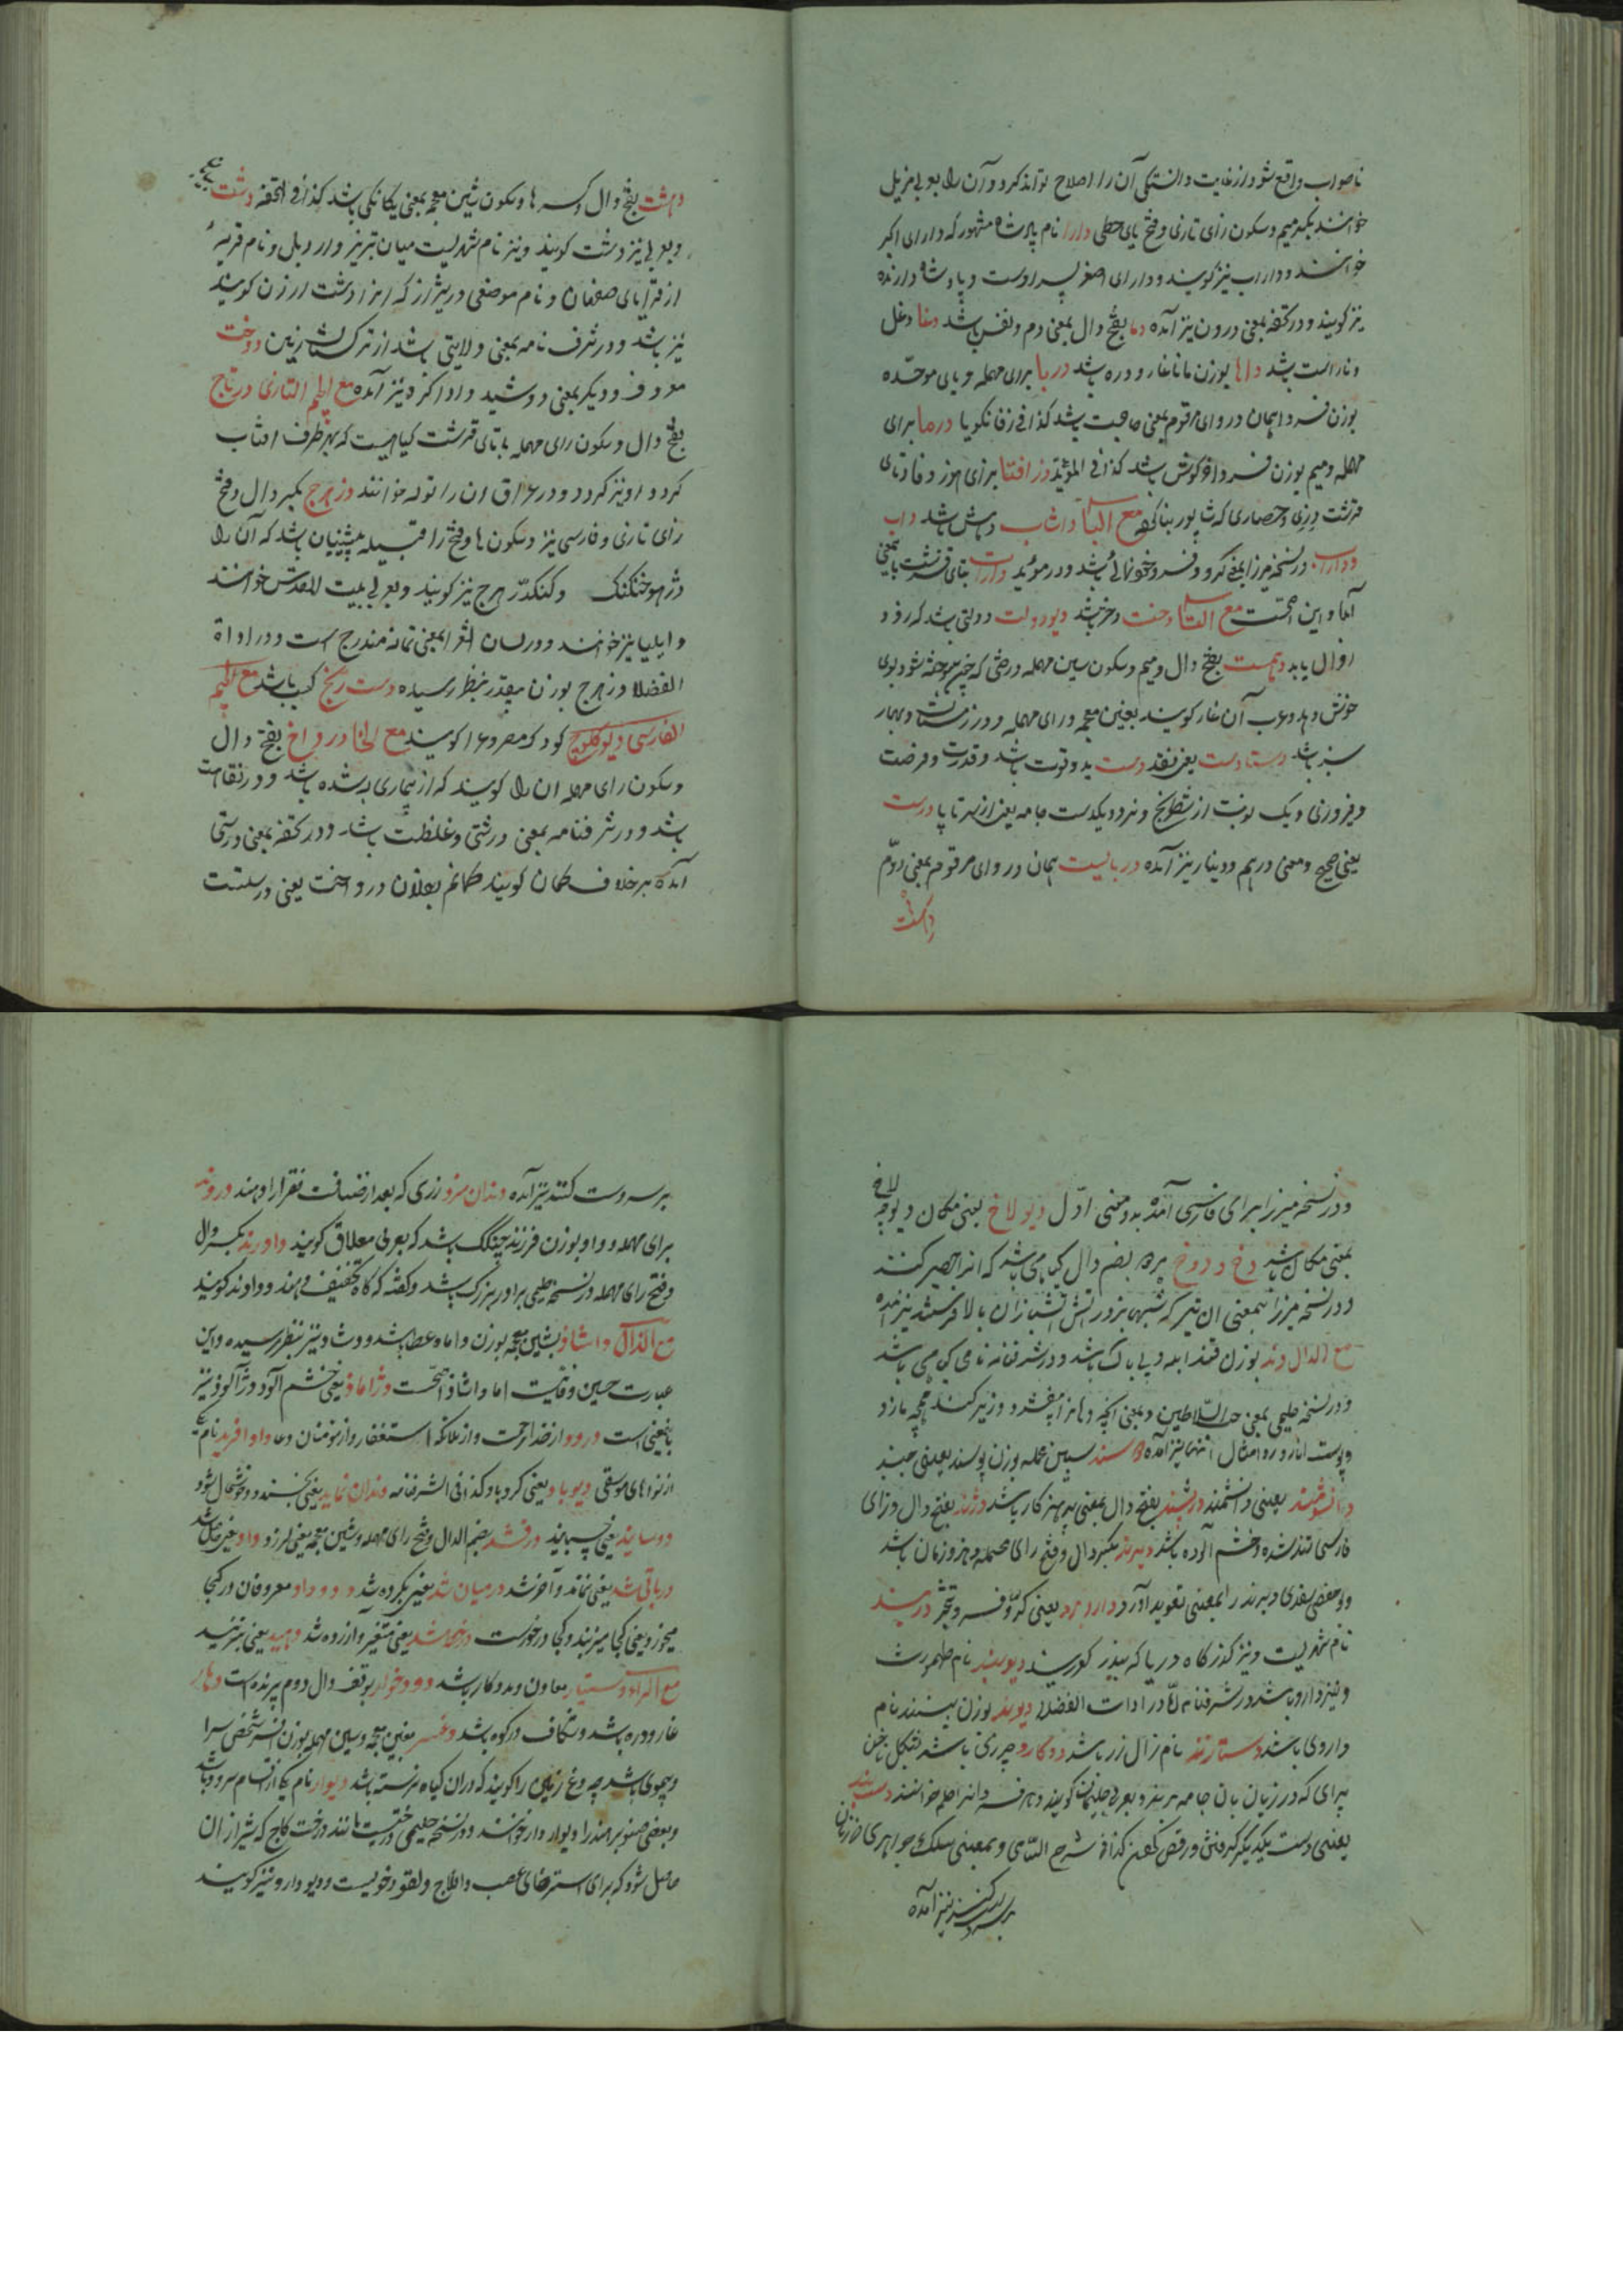 ناصواب واقع شود از غایت دانستگی آن را اصلاح تواند کرد و آن را بعربی مزیل
خوانند بکسر میم و سکون زای تازی و فتح یای حطی دارا نام پادشاه مشهور که دارای اکبر
خوانند و داراب نیز گویند و دارای اصغر پسر اوست و پادشاه دارنده
نیز گویند و در تحفه بمعنی درون نیز آمده دما بفتح دال بمعنی دم و نفس باشد دغا دغل
و ناراست باشد داها بوزن مانا غار و دره باشد دربا برای مهمله و بای موحده
بوزن فردا همان دروای مرقوم بمعنی حاجت باشد کذا فی درما برای
مهمله و میم بوزن فردا خرگوش باشد کذا فی المؤید دز افتا برای هوز و فا و تای
قرشت دزی و حصاری که شاپور بنا کرده مع البا داشاب دهش باشد داب
و داراب در نسخه میرزا بمعنی کر و فر و خودنمائی باشد و در مؤید دارات بتای قرشت باین معنی
آمده و این اصحست مع التا دخت دختر باشد دیودولت دولتی باشد که زود
زوال یابد دهمست بفتح دال و میم و سکون سین مهمله درختی که چون سوخته شود بوی
خوش دهد و عرب آن را غار گویند بغین معجمه و رای مهمله و در زمستان و بهار
سبز باشد دستادست یعنی نقد دست ید و قوت باشد و قدرت و فرصت
و فیروزی و یک نوبت از شطرنج و نرد و یکدست جامه یعنی از سر تا پا درست
یعنی صحیح و معنی درهم و دینار نیز آمده دربایست همان دروای مرقوم بمعنی دوم
دهشت
دهشت بفتح دال و کسر ها و سکون شین معجمه بمعنی یکانگی باشد کذا فی التحفه دشت
و بعربی نیز دشت گویند و نیز نام شهریست میان تبریز و اردبیل و نام قریهٔ
از قرایای صفهان و نام موضعی در شیراز که انرا دشت ارزن گویند
نیز باشد و در شرف نامه بمعنی ولایتی باشد از ترکستان زمین دوخت
معروف و دیگر بمعنی دوشید و ادا کرد نیز آمده مع الجیم التازی درتاج
بفتح دال و سکون رای مهمله با تای قرشت گیاهیست که بهر طرف افتاب
گردد او نیز گردد و در عراق ان را توله خوانند دزهرج بکسر دال و فتح
زای تازی و فارسی نیز و سکون ها و فتح را قبیله پیشینیان باشد که آن را
دژهوختکنک و کنکدزهرج نیز گویند و بعربی بیت المقدس خوانند
و ایلیا نیز خوانند و در لسان الشعرا بمعنی بتخانه مندرج است و در اداة
الفضلا دزهرج بوزن بنظر رسیده دست رنج کسب باشد مع الجیم
الفارسی دیوکلوچ کودک مصروع را گویند مع الخا درواخ بفتح دال
و سکون رای مهمله ان را گویند که از بیماری به شده باشد و در نقاهت
باشد و در شرفنامه بمعنی درشتی و غلظت باشد و در تحفه بمعنی درستی
آمده بر خلاف کمان گویند کمانم بفلان درواخت یعنی درستست
و در نسخه میرزا برای فارسی آمده بدو معنی اول دیو لاخ یعنی مکان دیو چه لاخ
بمعنی مکان باشد دخ و دوخ بر وزن بضم دال گیاهی باشد که از آن حصیر کنند
و در نسخه میرزا بمعنی ان تیر که شبها بزور آتش آتشبازان بالا فرستند نیز آمده
مع الدال دند بوزن قند ابله و بی باک باشد و در شرفنامه نام گیاهی باشد
و در نسخه حلیمی بمعنی حب السلاطین و بمعنی آنچه دهانرا بیفشرد و زبر کند همچه مازو
و پوست انار و امثال آنها نیز آمده دسند بسین مهمله بوزن پسند یعنی جنبد
دانشومند یعنی دانشمند درشند بفتح دال بمعنی پرهیزکار باشد دژند بفتح دال و زای
فارسی تند شده و خشم آلوده باشد دیرند بکسر دال و فتح رای مهمله دهر و زمان باشد
و ابوحفص سغدی دیرند را بمعنی تعویذ آورده داربرد یعنی کر و فر و تبختر دربند
نام شهریست و نیز گذرگاه دریا که بندر گویند دیوبند نام طهمورث
و نیز دارو باشد در شرفنامه اما در ادات الفضلا دیوند بوزن ببینند نام
داروی باشد دستانزند نام زال زر باشد دوکارد چیزی باشد بشکل ناخن
پیرای که درزیان بان جامه برند و بعربی جلمان گویند دسبند
یعنی دست یکدیگر گرفتن و رقص کردن کذا فی شرح السامی و بمعنی سلک جواهری که زنان
بر سر دست کنند نیز آمده
بر سر دست کنند نیز آمده دندان مزد زری که بعد از ضیافت فقرا را دهند دروند
برای مهمله و واو بوزن فرزند چنگک باشد که بعربی معلاق گویند داورند بکسر دال
و فتح رای مهمله در نسخه حلیمی برادر بزرگ باشد و گفته که گاه تخفیف دهند و داوند گویند
مع الذال داشاذ بشین معجمه بوزن داماد عطا باشد و دشاد نیز بنظر رسیده و این
عبارت حسین وفائیست اما داشاد اصحست دژاماذ یعنی خشم آلود و دژآلوذ نیز
باینمعنی است درود از خدا رحمت و از ملائکه استغفار و از مؤمنان دعا داوافرید نام
از نواهای موسیقی دیوباد یعنی گردباد کذا فی الشرفنامه دندان نماید یعنی بخندد و خوشحال شود
دوساید یعنی چسباند درفشد بضم الدال و فتح رای مهمله و شین معجمه یعنی لرزد
درباقی شد یعنی نماند و آخر شد درمیان شد یعنی بکرده شد دوداد معروفان در کجا
میخوزد یعنی کجا میزند و کجا درخورست شد یعنی متغیر و آزرده شد دمید یعنی بتزید
مع الراء دستیار معاون و مددکار باشد دودخوار بوقف دال دوم پرنده است دهار
غار و دره باشد و شکاف در کوه باشد دغسر بغین معجمه و سین مهمله بوزن افسر شخصی سرا
و بیموی باشد چه دغ زمین را گویند که در ان گیاه نرسته باشد دیوار نام یکی از اقسام سرو باشد
و بعضی صنوبر هند را دیودار خوانند و در نسخه حلیمی درختیست مانند درخت کاج که شیر از ان
حاصل شود که برای استرخای عصب و افلاج و لقوه خوبست و دیودارو نیز گویند